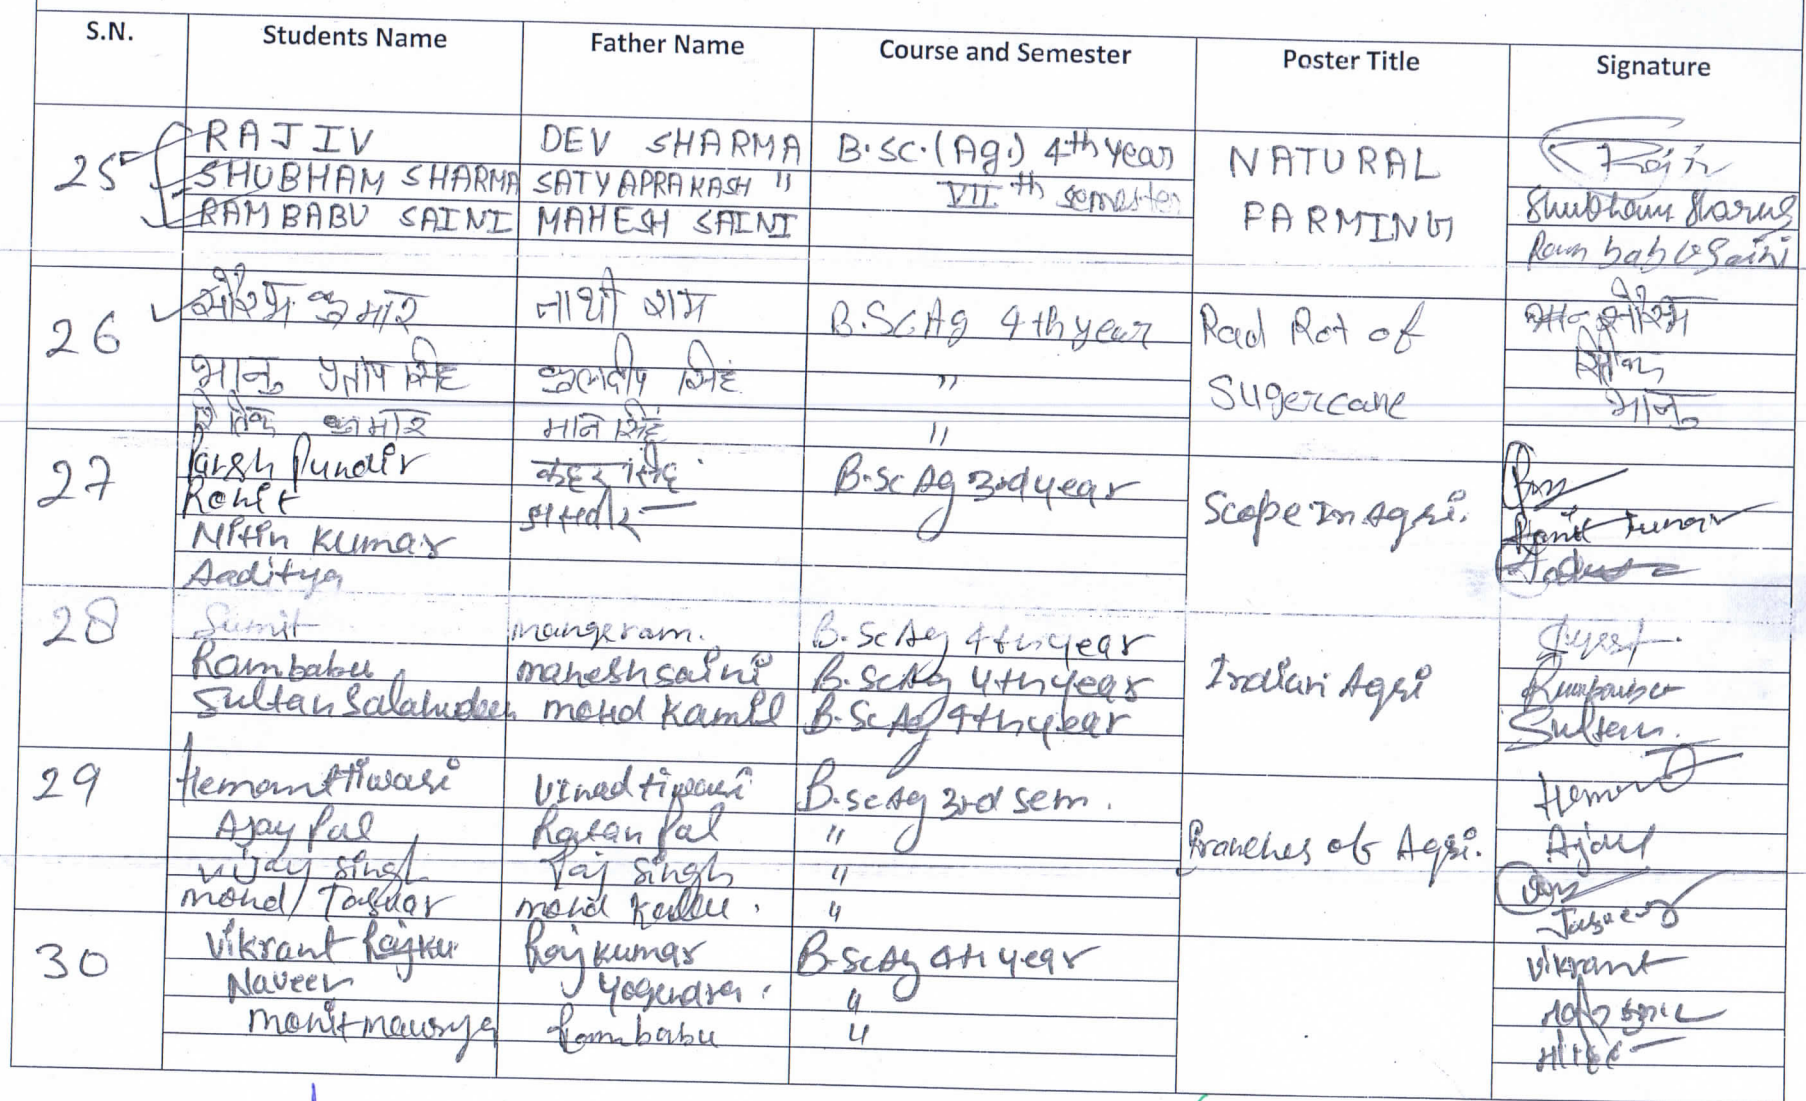 S.N. Students Name Father Name Course and Semester Poster Title Signature
25 RAJIV DEV SHARMA B.Sc.(Ag.) 4th year NATURAL
SHUBHAM SHARMA SATYAPRAKASH " VII th semester Shubham Sharma
RAM BABU SAINI MAHESH SAINI FARMING Ram babu Saini
26 सौरभ कुमार नाथी राम B.Sc.Ag 4th year Rad Rot of सौरभ
भानु प्रताप सिंह कुलदीप सिंह " Sugercane
रितिक कुमार मान सिंह " भानु
27 Pundir B.Sc Ag 3rd year Scope In Agri.
Rohit
Nitin Kumar
Aaditya
28 Sumit mangeram. B.Sc Ag 4th year
Rambabu mahesh saini B.Sc Ag 4th year Indian Agri
Sultan Salahudeen mohd Kamil B.Sc Ag 4th year Sultan.
29 Hemant tiwari Vinod tiwari B.sc Ag 3rd sem. Hemant
Ajay Pal Ratan Pal " Branches of Agri.
Vijay Singh Raj Singh "
mohd Tasuar mohd Kallu. "
30 Vikrant Rajku Rajkumar B.Sc Ag 4th year Vikrant
Naveen Yogendra. "
mohit maurya Rambabu " मोहित